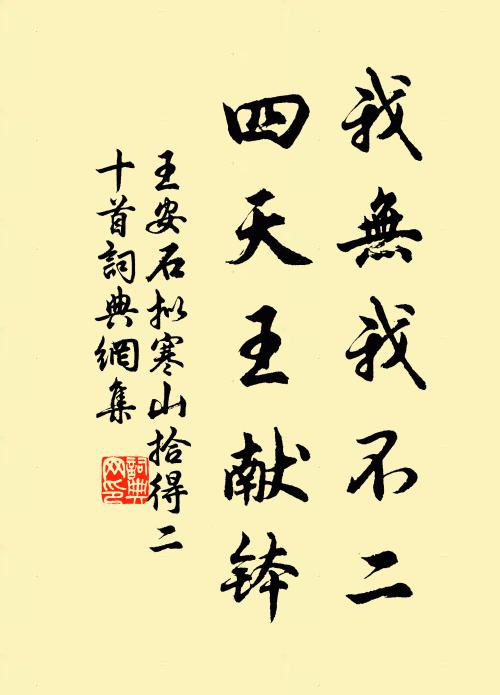 我無我不二
四天王献鉢
王安石拟寒山拾得二
十首詞典網集
詞典
网印